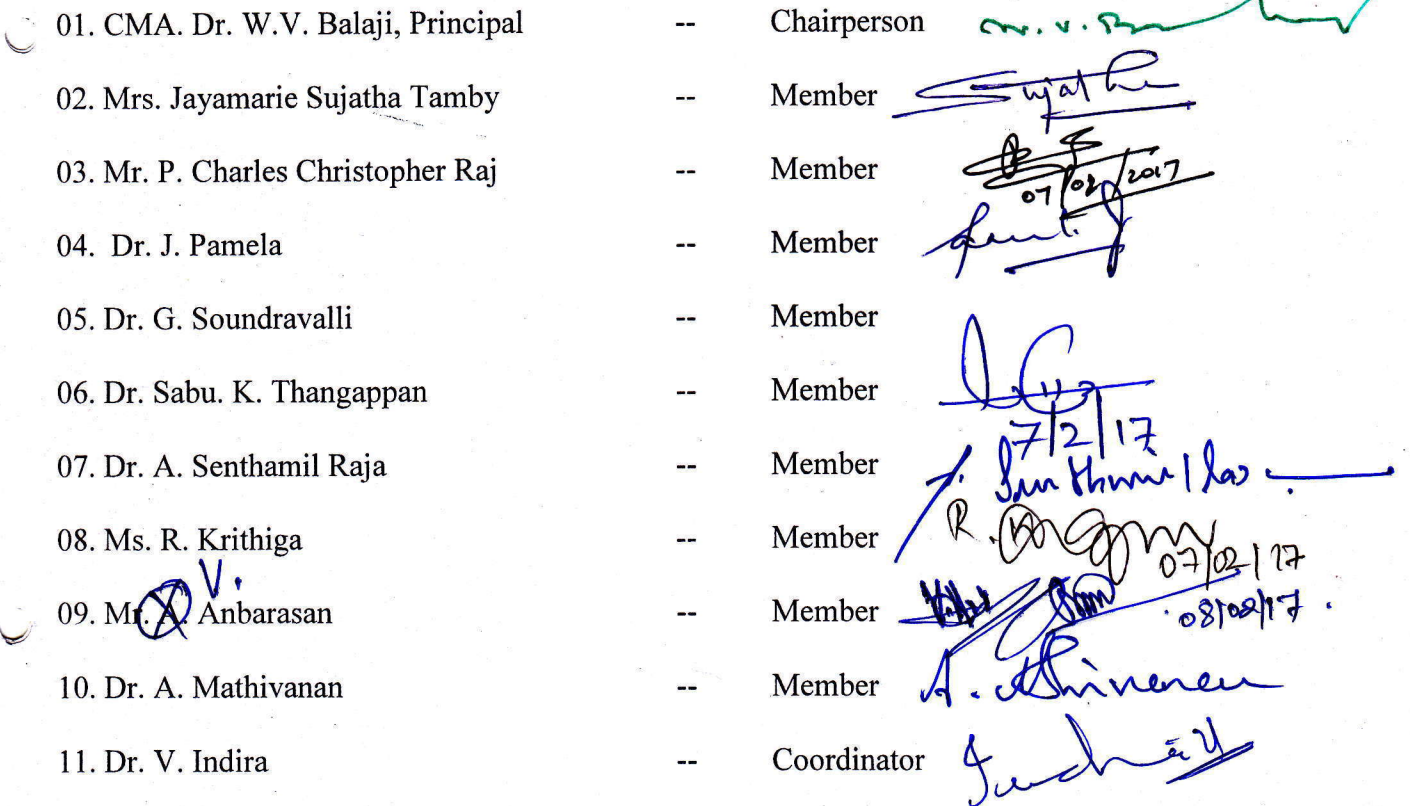 01. CMA. Dr. W.V. Balaji, Principal -- Chairperson
02. Mrs. Jayamarie Sujatha Tamby -- Member Sujatha
03. Mr. P. Charles Christopher Raj -- Member 07/02/2017
04. Dr. J. Pamela -- Member
05. Dr. G. Soundravalli -- Member
06. Dr. Sabu. K. Thangappan -- Member 7/2/17
07. Dr. A. Senthamil Raja -- Member
08. Ms. R. Krithiga -- Member R. 07/02/17
V.
09. Mr. A. Anbarasan -- Member 08/02/17.
10. Dr. A. Mathivanan -- Member
11. Dr. V. Indira -- Coordinator